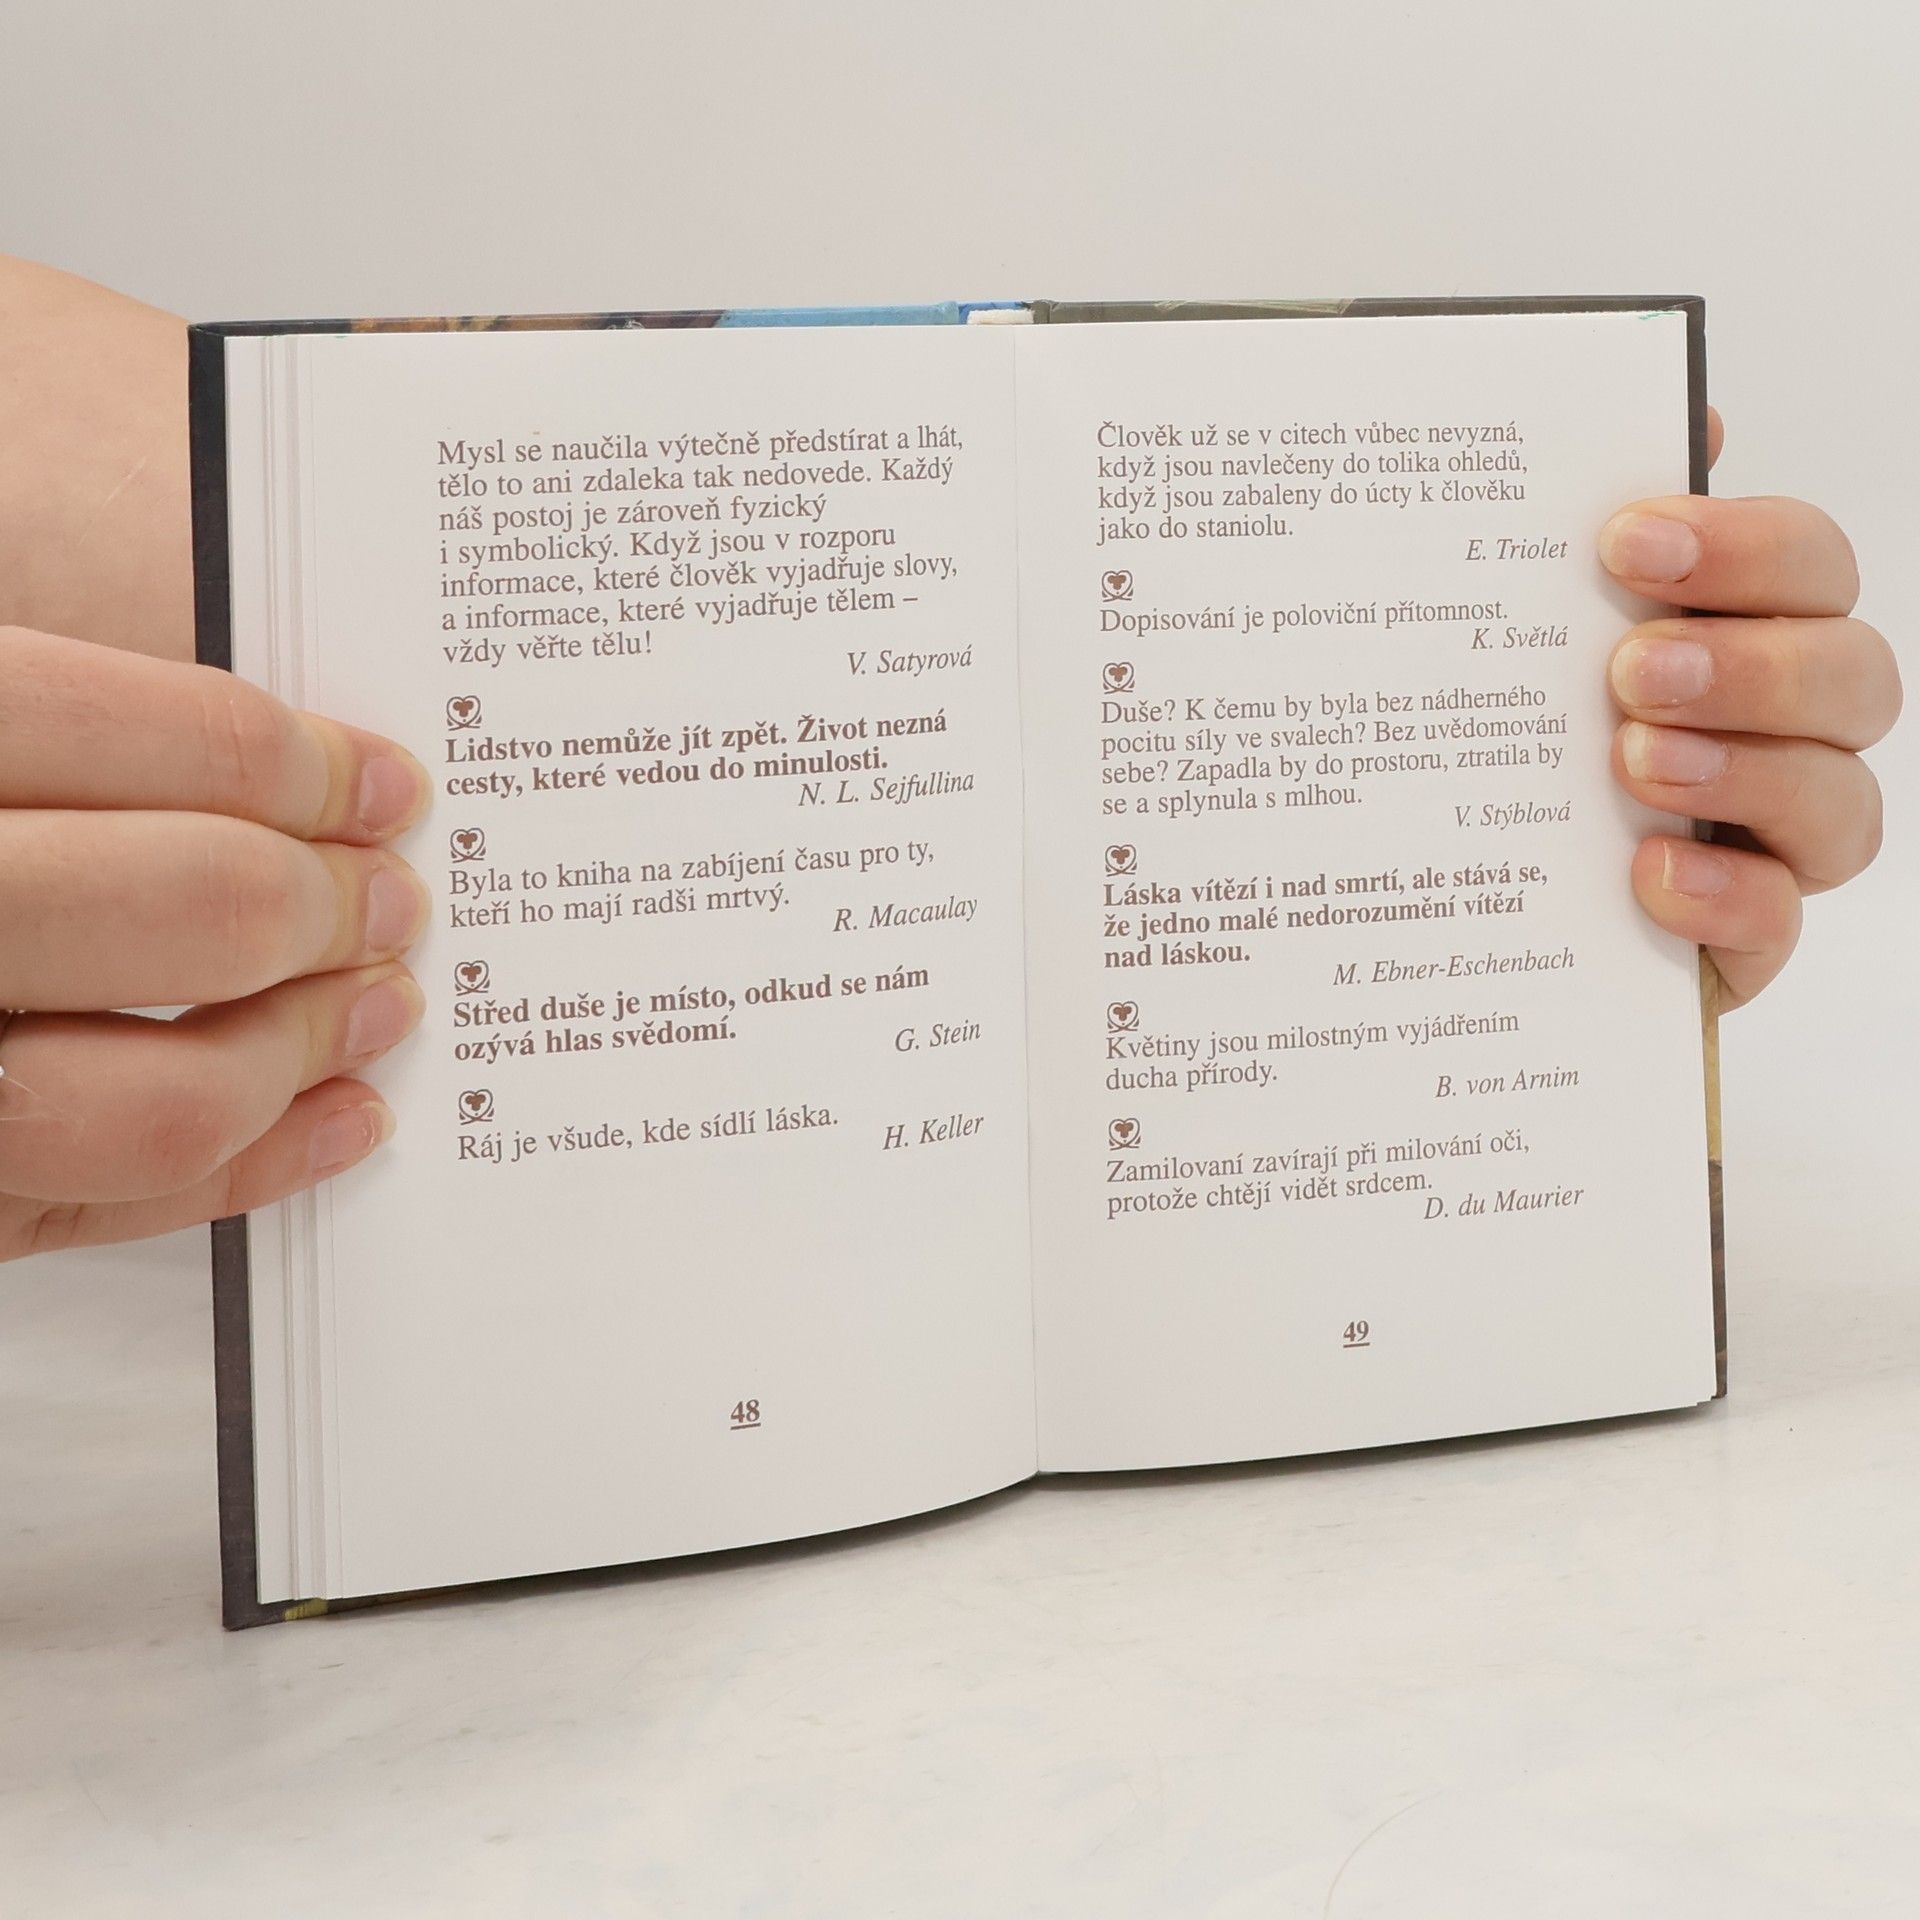 Mysl se naučila výtečně předstírat a lhát,
tělo to ani zdaleka tak nedovede. Každý
náš postoj je zároveň fyzický
i symbolický. Když jsou v rozporu
informace, které člověk vyjadřuje slovy,
a informace, které vyjadřuje tělem –
vždy věřte tělu!
V. Satyrová
Lidstvo nemůže jít zpět. Život nezná
cesty, které vedou do minulosti.
N. L. Sejfullina
Byla to kniha na zabíjení času pro ty,
kteří ho mají radši mrtvý.
R. Macaulay
Střed duše je místo, odkud se nám
ozývá hlas svědomí.
G. Stein
Ráj je všude, kde sídlí láska.
H. Keller
48
Člověk už se v citech vůbec nevyzná,
když jsou navlečeny do tolika ohledů,
když jsou zabaleny do úcty k člověku
jako do staniolu.
E. Triolet
Dopisování je poloviční přítomnost.
K. Světlá
Duše? K čemu by byla bez nádherného
pocitu síly ve svalech? Bez uvědomování
sebe? Zapadla by do prostoru, ztratila by
se a splynula s mlhou.
V. Stýblová
Láska vítězí i nad smrtí, ale stává se,
že jedno malé nedorozumění vítězí
nad láskou.
M. Ebner-Eschenbach
Květiny jsou milostným vyjádřením
ducha přírody.
B. von Arnim
Zamilovaní zavírají při milování oči,
protože chtějí vidět srdcem.
D. du Maurier
49